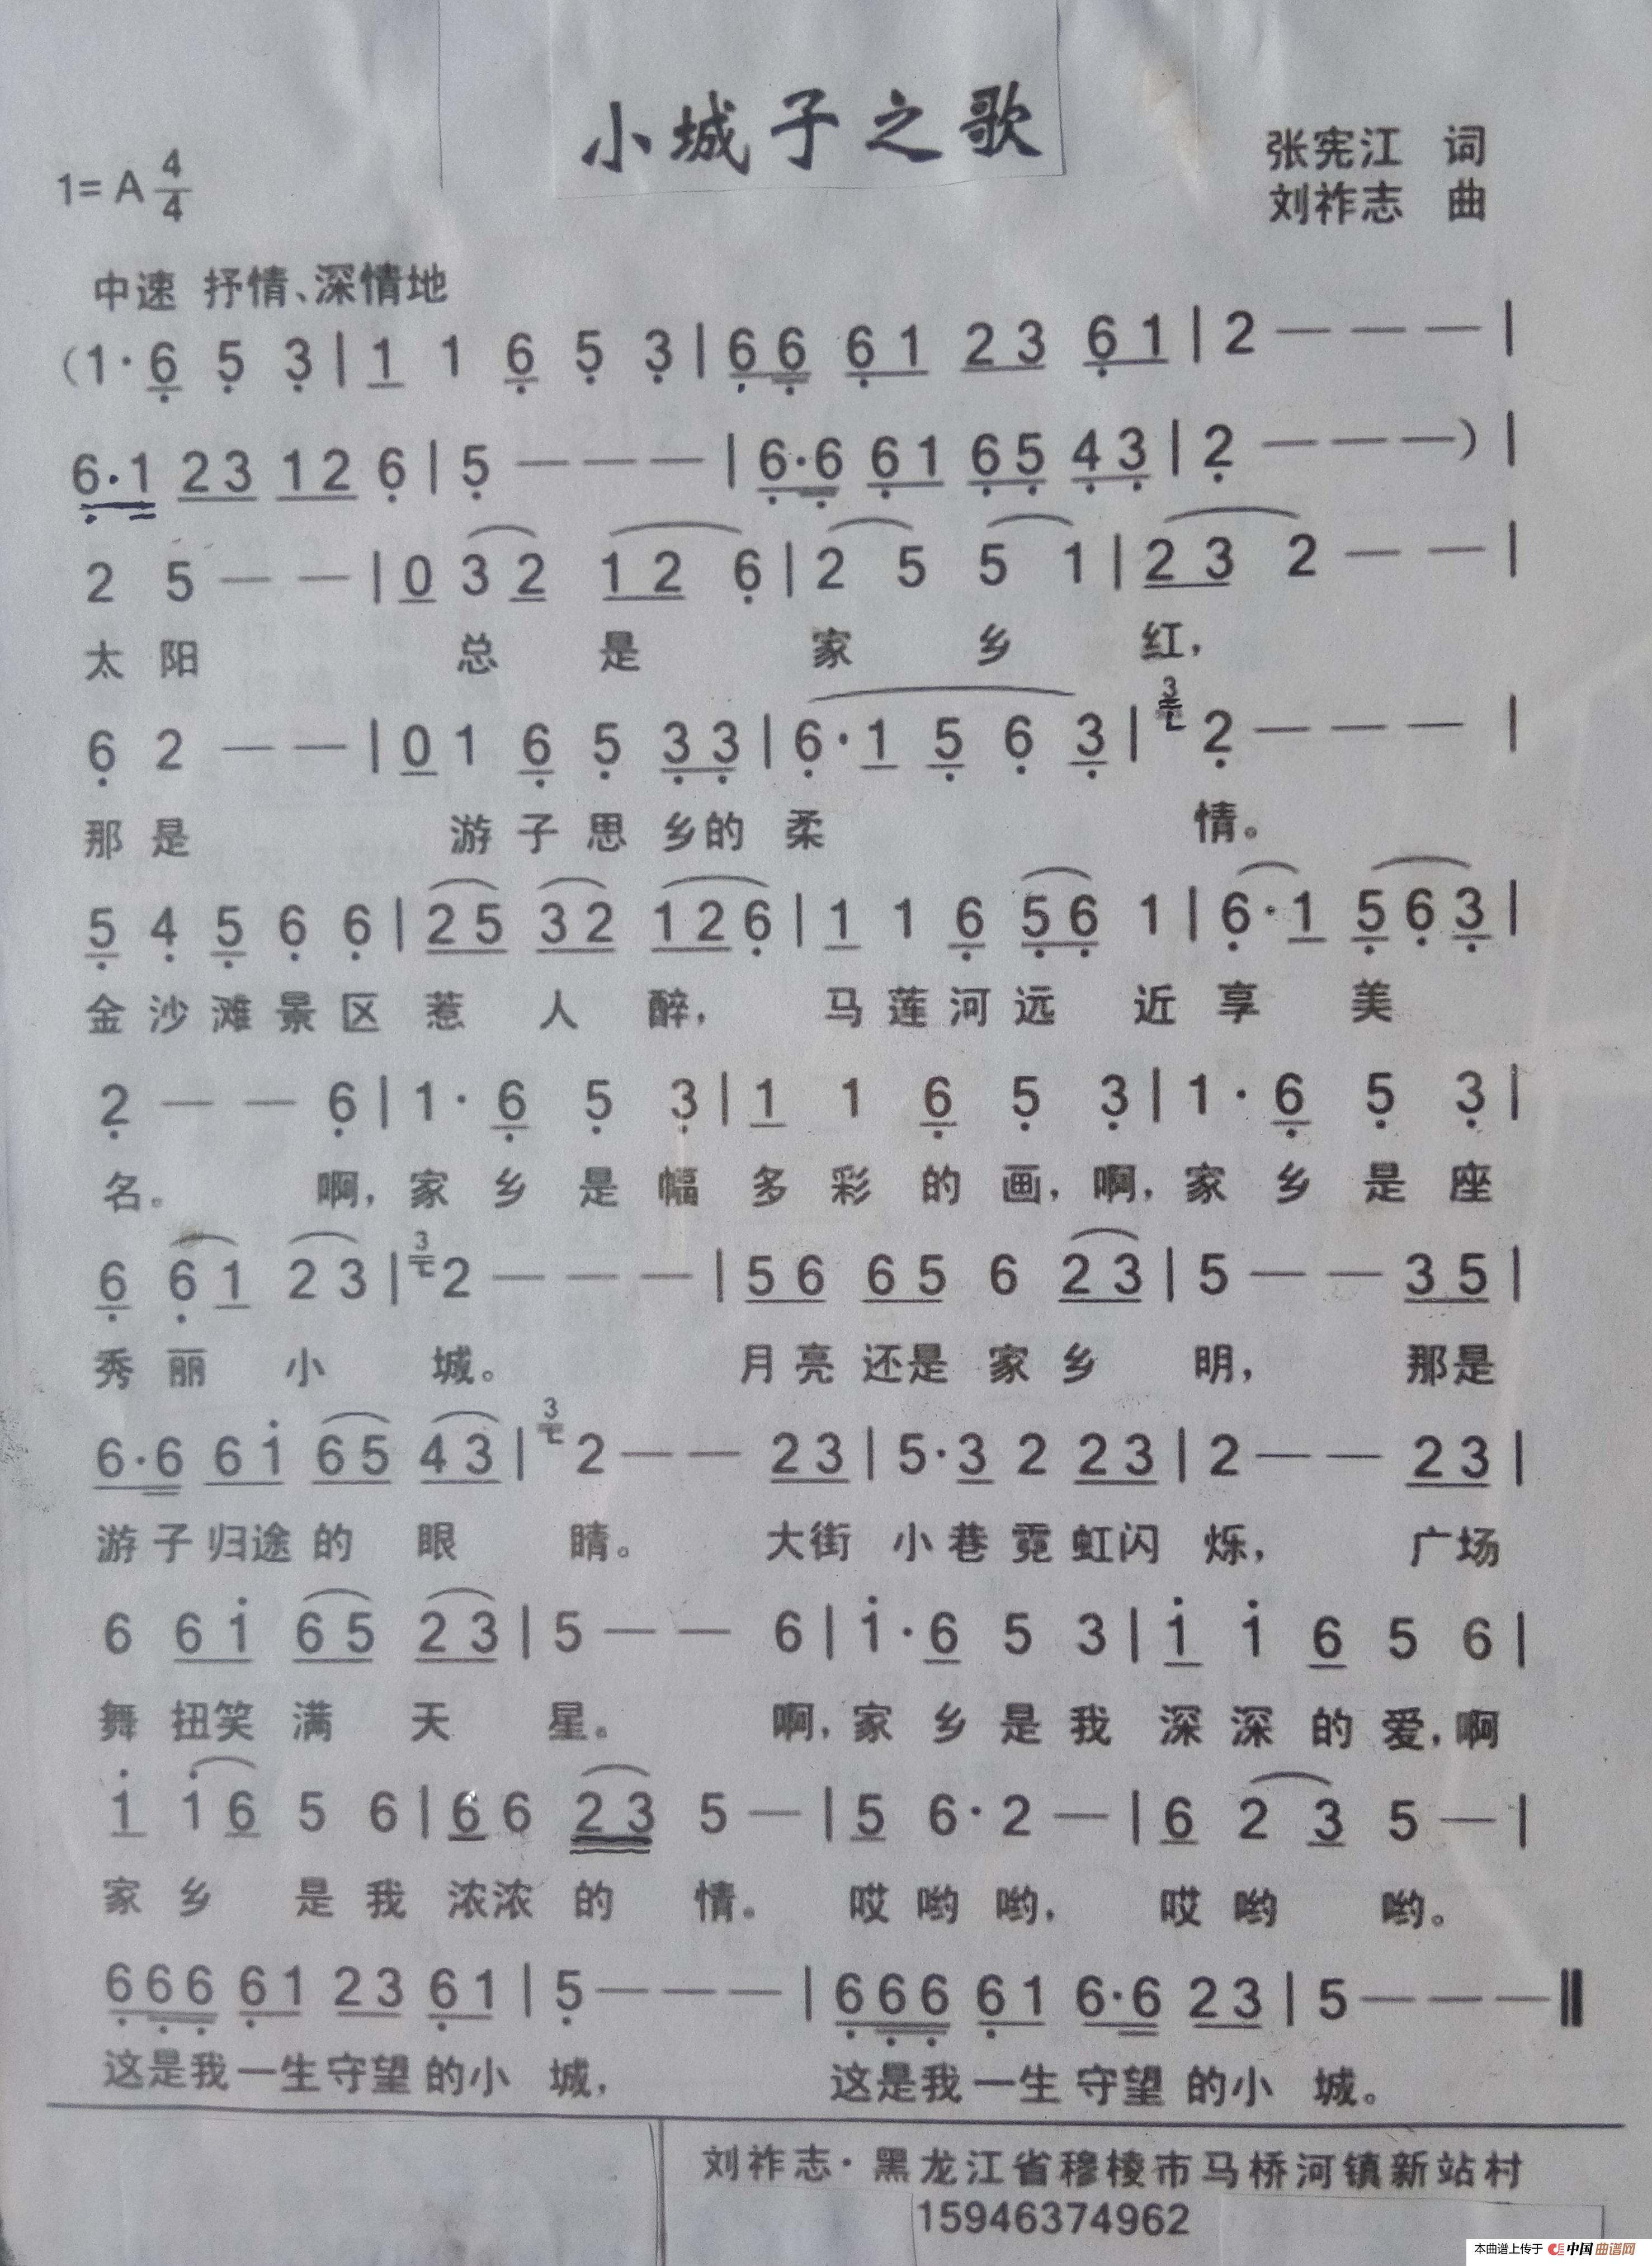 小城子之歌
1=A 4/4
张宪江 词
刘祚志 曲
中速 抒情、深情地
(1· 6 5 3 | 1 1 6 5 3 | 6 6 6 1 2 3 6 1 | 2 — — — |
6·1 2 3 1 2 6 | 5 — — — | 6·6 6 1 6 5 4 3 | 2 — — —) |
2 5 — — | 0 3 2 1 2 6 | 2 5 5 1 | 2 3 2 — — |
太 阳 总 是 家 乡 红,
6 2 — — | 0 1 6 5 3 3 | 6·1 5 6 3 | 3 2 — — — |
那 是 游 子 思 乡 的 柔 情。
5 4 5 6 6 | 2 5 3 2 1 2 6 | 1 1 6 5 6 1 | 6·1 5 6 3 |
金 沙 滩 景 区 惹 人 醉, 马 莲 河 远 近 享 美
2 — — 6 | 1· 6 5 3 | 1 1 6 5 3 | 1· 6 5 3 |
名。 啊, 家 乡 是 幅 多 彩 的 画, 啊, 家 乡 是 座
6 6 1 2 3 | 3 2 — — — | 5 6 6 5 6 2 3 | 5 — — 3 5 |
秀 丽 小 城。 月 亮 还是 家 乡 明, 那是
6·6 6 i 6 5 4 3 | 3 2 — — 2 3 | 5·3 2 2 3 | 2 — — 2 3 |
游 子 归途 的 眼 睛。 大街 小 巷 霓 虹闪 烁, 广场
6 6 i 6 5 2 3 | 5 — — 6 | i·6 5 3 | i i 6 5 6 |
舞 扭笑 满 天 星。 啊, 家 乡 是 我 深 深 的 爱, 啊
i i 6 5 6 | 6 6 2 3 5 — | 5 6· 2 — | 6 2 3 5 — |
家 乡 是 我 浓浓 的 情。 哎 哟 哟, 哎 哟 哟。
6 6 6 6 1 2 3 6 1 | 5 — — — | 6 6 6 6 1 6·6 2 3 | 5 — — — ‖
这是我一生守望 的小 城, 这是我一生 守望 的小 城。
刘祚志·黑龙江省穆棱市马桥河镇新站村
15946374962
本曲谱上传于 中国曲谱网